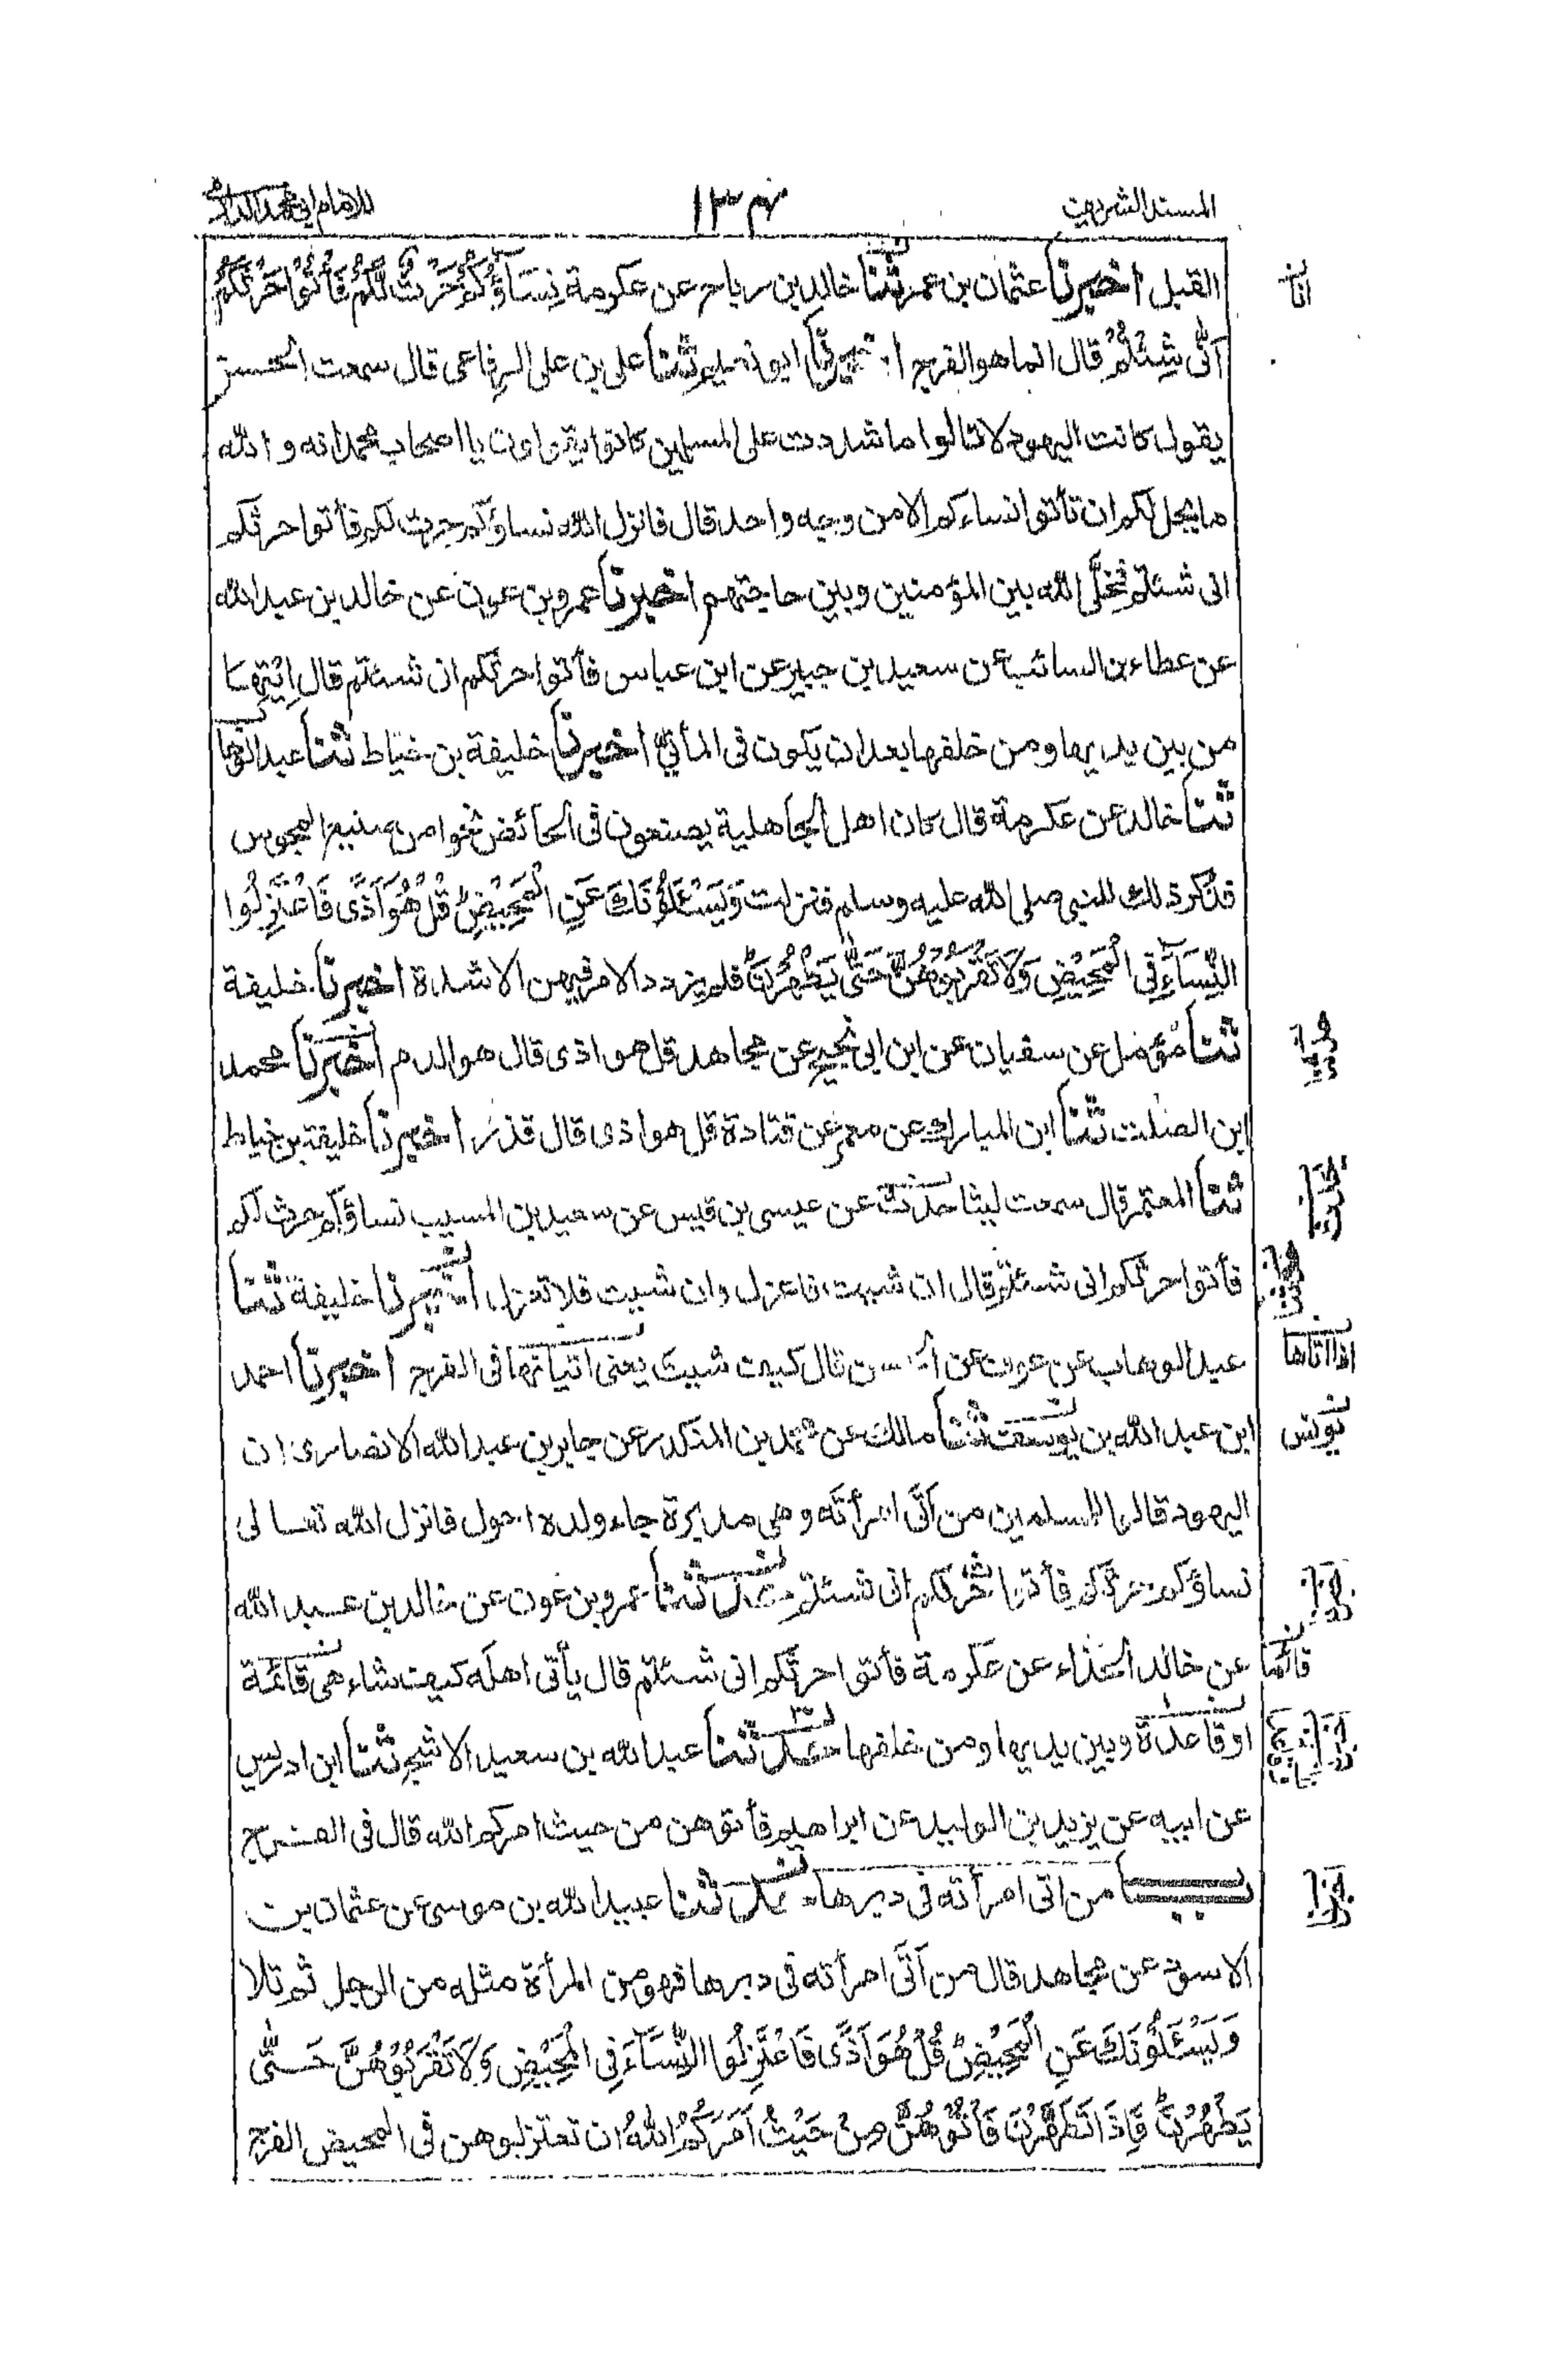 المسند الشريف ١٣٤ للامام ابى محمد الدارمى
القبل اخبرنا عثمان بن عمر ثنا خالد بن رباح عن عكرمة نِسَآؤُكُمْ حَرْثٌ لَّكُمْ فَأْتُوْا حَرْثَكُمْ
اَنّٰى شِئْتُمْ قال انما هو الفرج اخبرنا ابو نعيم ثنا على بن على الرفاعى قال سمعت الحسن
يقول كانت اليهود لا تالوا ما شددت على المسلمين كانوا يقولون يا اصحاب محمد انه و الله
ما يحل لكم ان تأتوا نساءكم الا من وجه واحد قال فانزل الله نساؤكم حرث لكم فأتوا حرثكم
انى شئتم فخلَّى الله بين المؤمنين وبين حاجتهم اخبرنا عمرو بن عون عن خالد بن عبد الله
عن عطاء بن السائب عن سعيد بن جبير عن ابن عباس فأتوا حرثكم انى شئتم قال اِئْتِهَا
من بين يديها ومن خلفها بعد ان يكون فى المأتىّ اخبرنا خليفة بن خياط ثنا عبد الوهاب
ثنا خالد عن عكرمة قال كان اهل الجاهلية يصنعون فى الحائض نحوا من صنيع المجوس
فذكر ذلك للنبى صلى الله عليه وسلم فنزلت وَيَسْئَلُوْنَكَ عَنِ الْمَحِيْضِ قُلْ هُوَ اَذًى فَاعْتَزِلُوا
النِّسَآءَ فِى الْمَحِيْضِ وَلَا تَقْرَبُوْهُنَّ حَتّٰى يَطْهُرْنَ فلم يزدد الامر فيهن الا شدة اخبرنا خليفة
ثنا مؤمل عن سفيان عن ابن ابى نجيح عن مجاهد قل هو اذى قال هو الدم اخبرنا محمد
ابن الصلت ثنا ابن المبارك عن معمر عن قتادة قل هو اذى قال قذر اخبرنا خليفة بن خياط
ثنا المعتمر قال سمعت ليثا حدث عن عيسى بن قيس عن سعيد بن المسيب نساؤكم حرث لكم
فأتوا حرثكم انى شئتم قال ان شئت فاعزل وان شئت فلا تعزل اخبرنا خليفة ثنا
عبد الوهاب عن عوف عن الحسن قال كيف شئت يعنى اتيانها فى الفرج اخبرنا احمد
اذا اتاها
ابن عبد الله بن يوسف ثنا مالك عن محمد بن المنكدر عن جابر بن عبد الله الانصارى ان
يونس
اليهود قالوا للمسلمين من اَتٰى امرأته وهى مدبرة جاء ولده احول فانزل الله تعالى
نساؤكم حرث لكم فأتوا حرثكم انى شئتم حدثنا عمرو بن عون عن خالد بن عبد الله
عن خالد الحذاء عن عكرمة فأتوا حرثكم انى شئتم قال يأتى اهله كيف شاء هى قائمة
قائما
او قاعدة وبين يديها ومن خلفها حدثنا عبد الله بن سعيد الاشج ثنا ابن ادريس
عن ابيه عن يزيد بن الوليد عن ابراهيم فأتوهن من حيث امركم الله قال فى الفرج
باب من اتى امرأته فى دبرها حدثنا عبيد الله بن موسى عن عثمان بن
الاسود عن مجاهد قال من اَتٰى امرأته فى دبرها فهو من المرأة مثله من الرجل ثم تلا
وَيَسْئَلُوْنَكَ عَنِ الْمَحِيْضِ قُلْ هُوَ اَذًى فَاعْتَزِلُوا النِّسَآءَ فِى الْمَحِيْضِ وَلَا تَقْرَبُوْهُنَّ حَتّٰى
يَطْهُرْنَ فَاِذَا تَطَهَّرْنَ فَأْتُوْهُنَّ مِنْ حَيْثُ اَمَرَكُمُ اللهُ ان تعتزلوهن فى المحيض الفرج